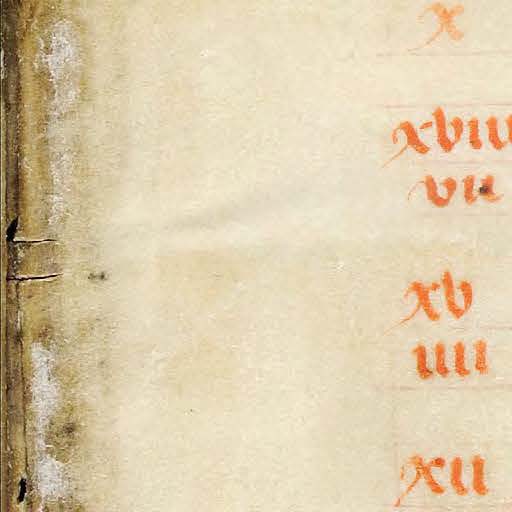 x
xviii
vii
xv
iiii
xii